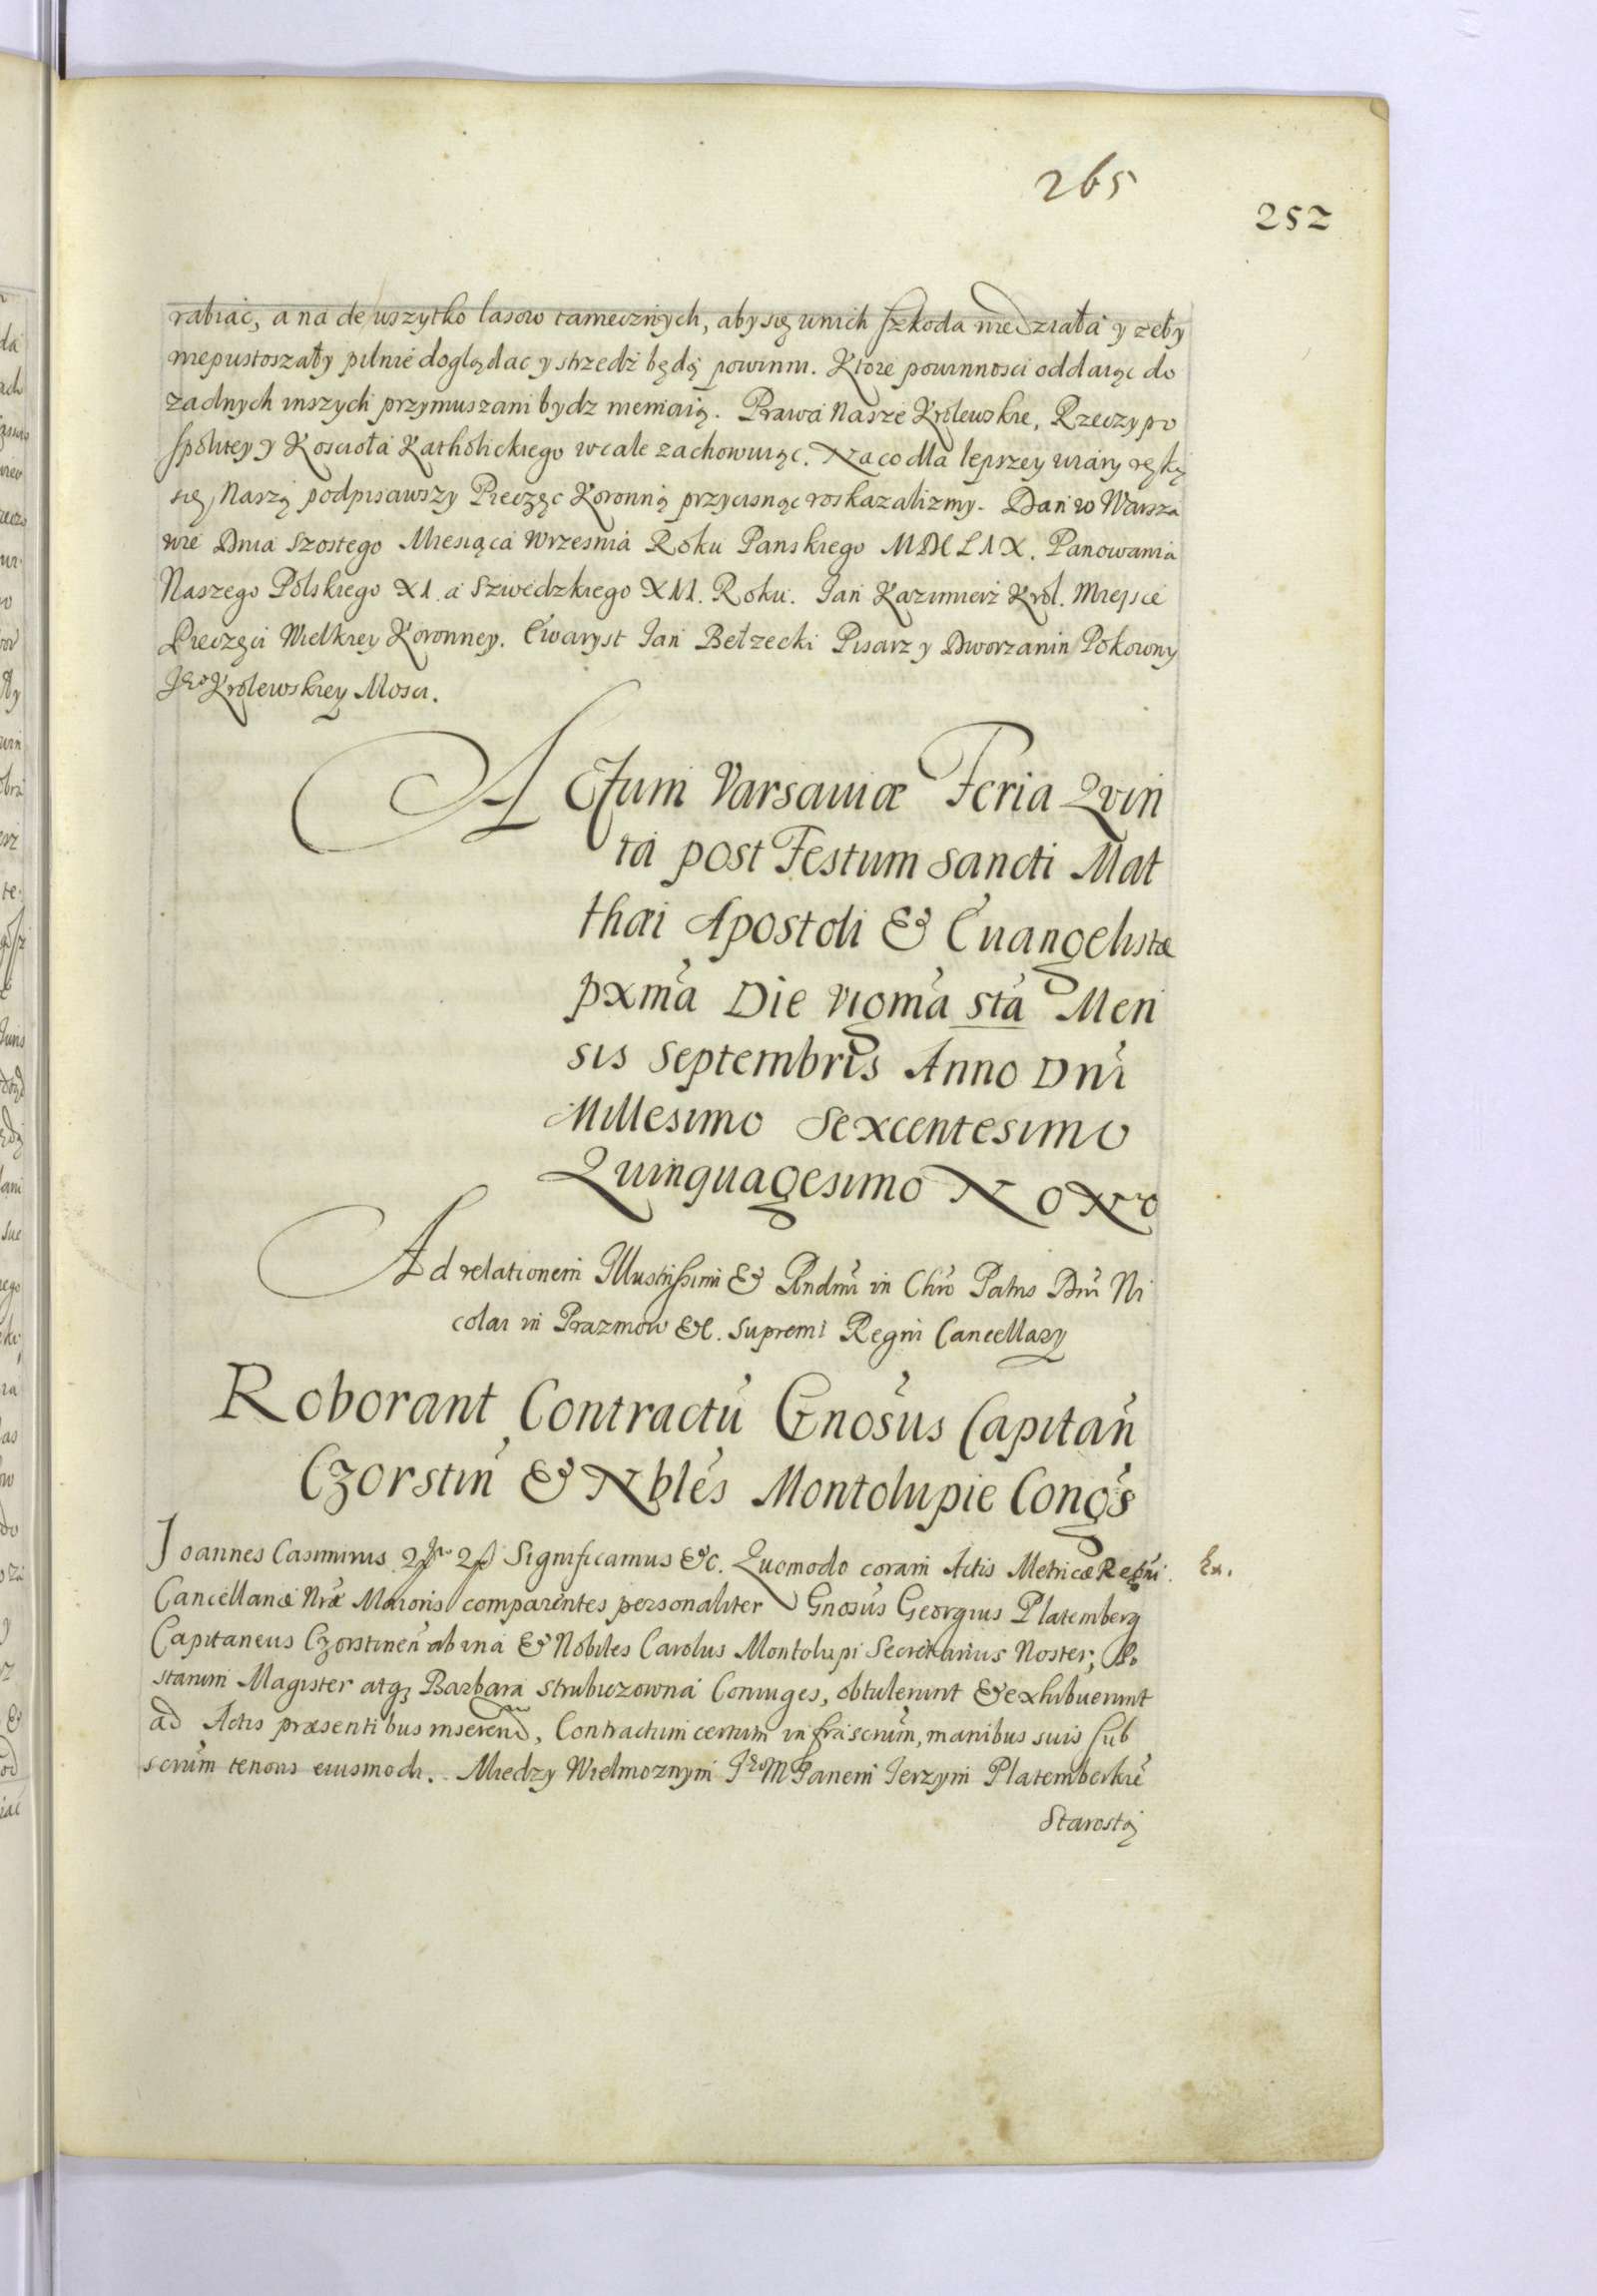 265
252
rabiać, a na de wszytko lasow tamecznych, aby się wnich szkoda nie działa y zeby
niepustoszały pilnie doglądac y strzedz będą powinni. Ktore powinnosci oddaiąc do
zadnych inszych przymuszani bydz niemaią. Prawa Nasze Krolewskie, Rzeczypo
spolitey y Koscioła Katholickiego wcale zachowuiąc. Na co dla lepszey wiary ręką
się Naszą podpisawszy Pieczęc Koronną przycisnąc roskazalizmy. Dan w Warsza
wie Dnia Szostego Miesiąca Wrzesnia Roku Panskiego MDCLIX. Panowania
Naszego Polskiego XI. a Szwedzkiego XII. Roku. Jan Kazimierz Krol. Miejsce
Pieczęci Wielkiey Koronney. Ewaryst Jan Bełzecki Pisarz y Dworzanin Pokoiowy
JEo Krolewskiey Mosci.
Actum Varsaviæ Feria Qvin
ta post Festum Sancti Mat
thæi Apostoli & Euangelistæ
pxmã Die vigmã stã Men
sis Septembris Anno Dni
Millesimo Sexcentesimo
Quinquagesimo NoNo
Ad relationem Illustrissimi & Rndmi in Chro Patris Dni Ni
colai in Prazmow &c. Supremi Regni Cancellarij
Roborant Contractũ Gnosus Capitañ
Czorstiñ & Nbles Montolupie Congs
Joannes Casimirus Significamus &c. Quomodo coram Actis Metricæ Regni Ex.
Cancellariæ Nræ Maioris comparentes personaliter Gnosus Georgius Platemberg
Capitaneus Czorstineñ ab una & Nobiles Carolus Montolupi Secretarius Noster, Po
starum Magister atq3 Barbara Strubiczowna Coniuges, obtulerunt & exhibuerunt
ad Actis præsentibus inserend, Contractum certum infrascrum, manibus suis sub
scrum tenoris eiusmodi. Miedzy Wielmoznym JEo M Panem Jerzym Platemberkiẽ
Starostą